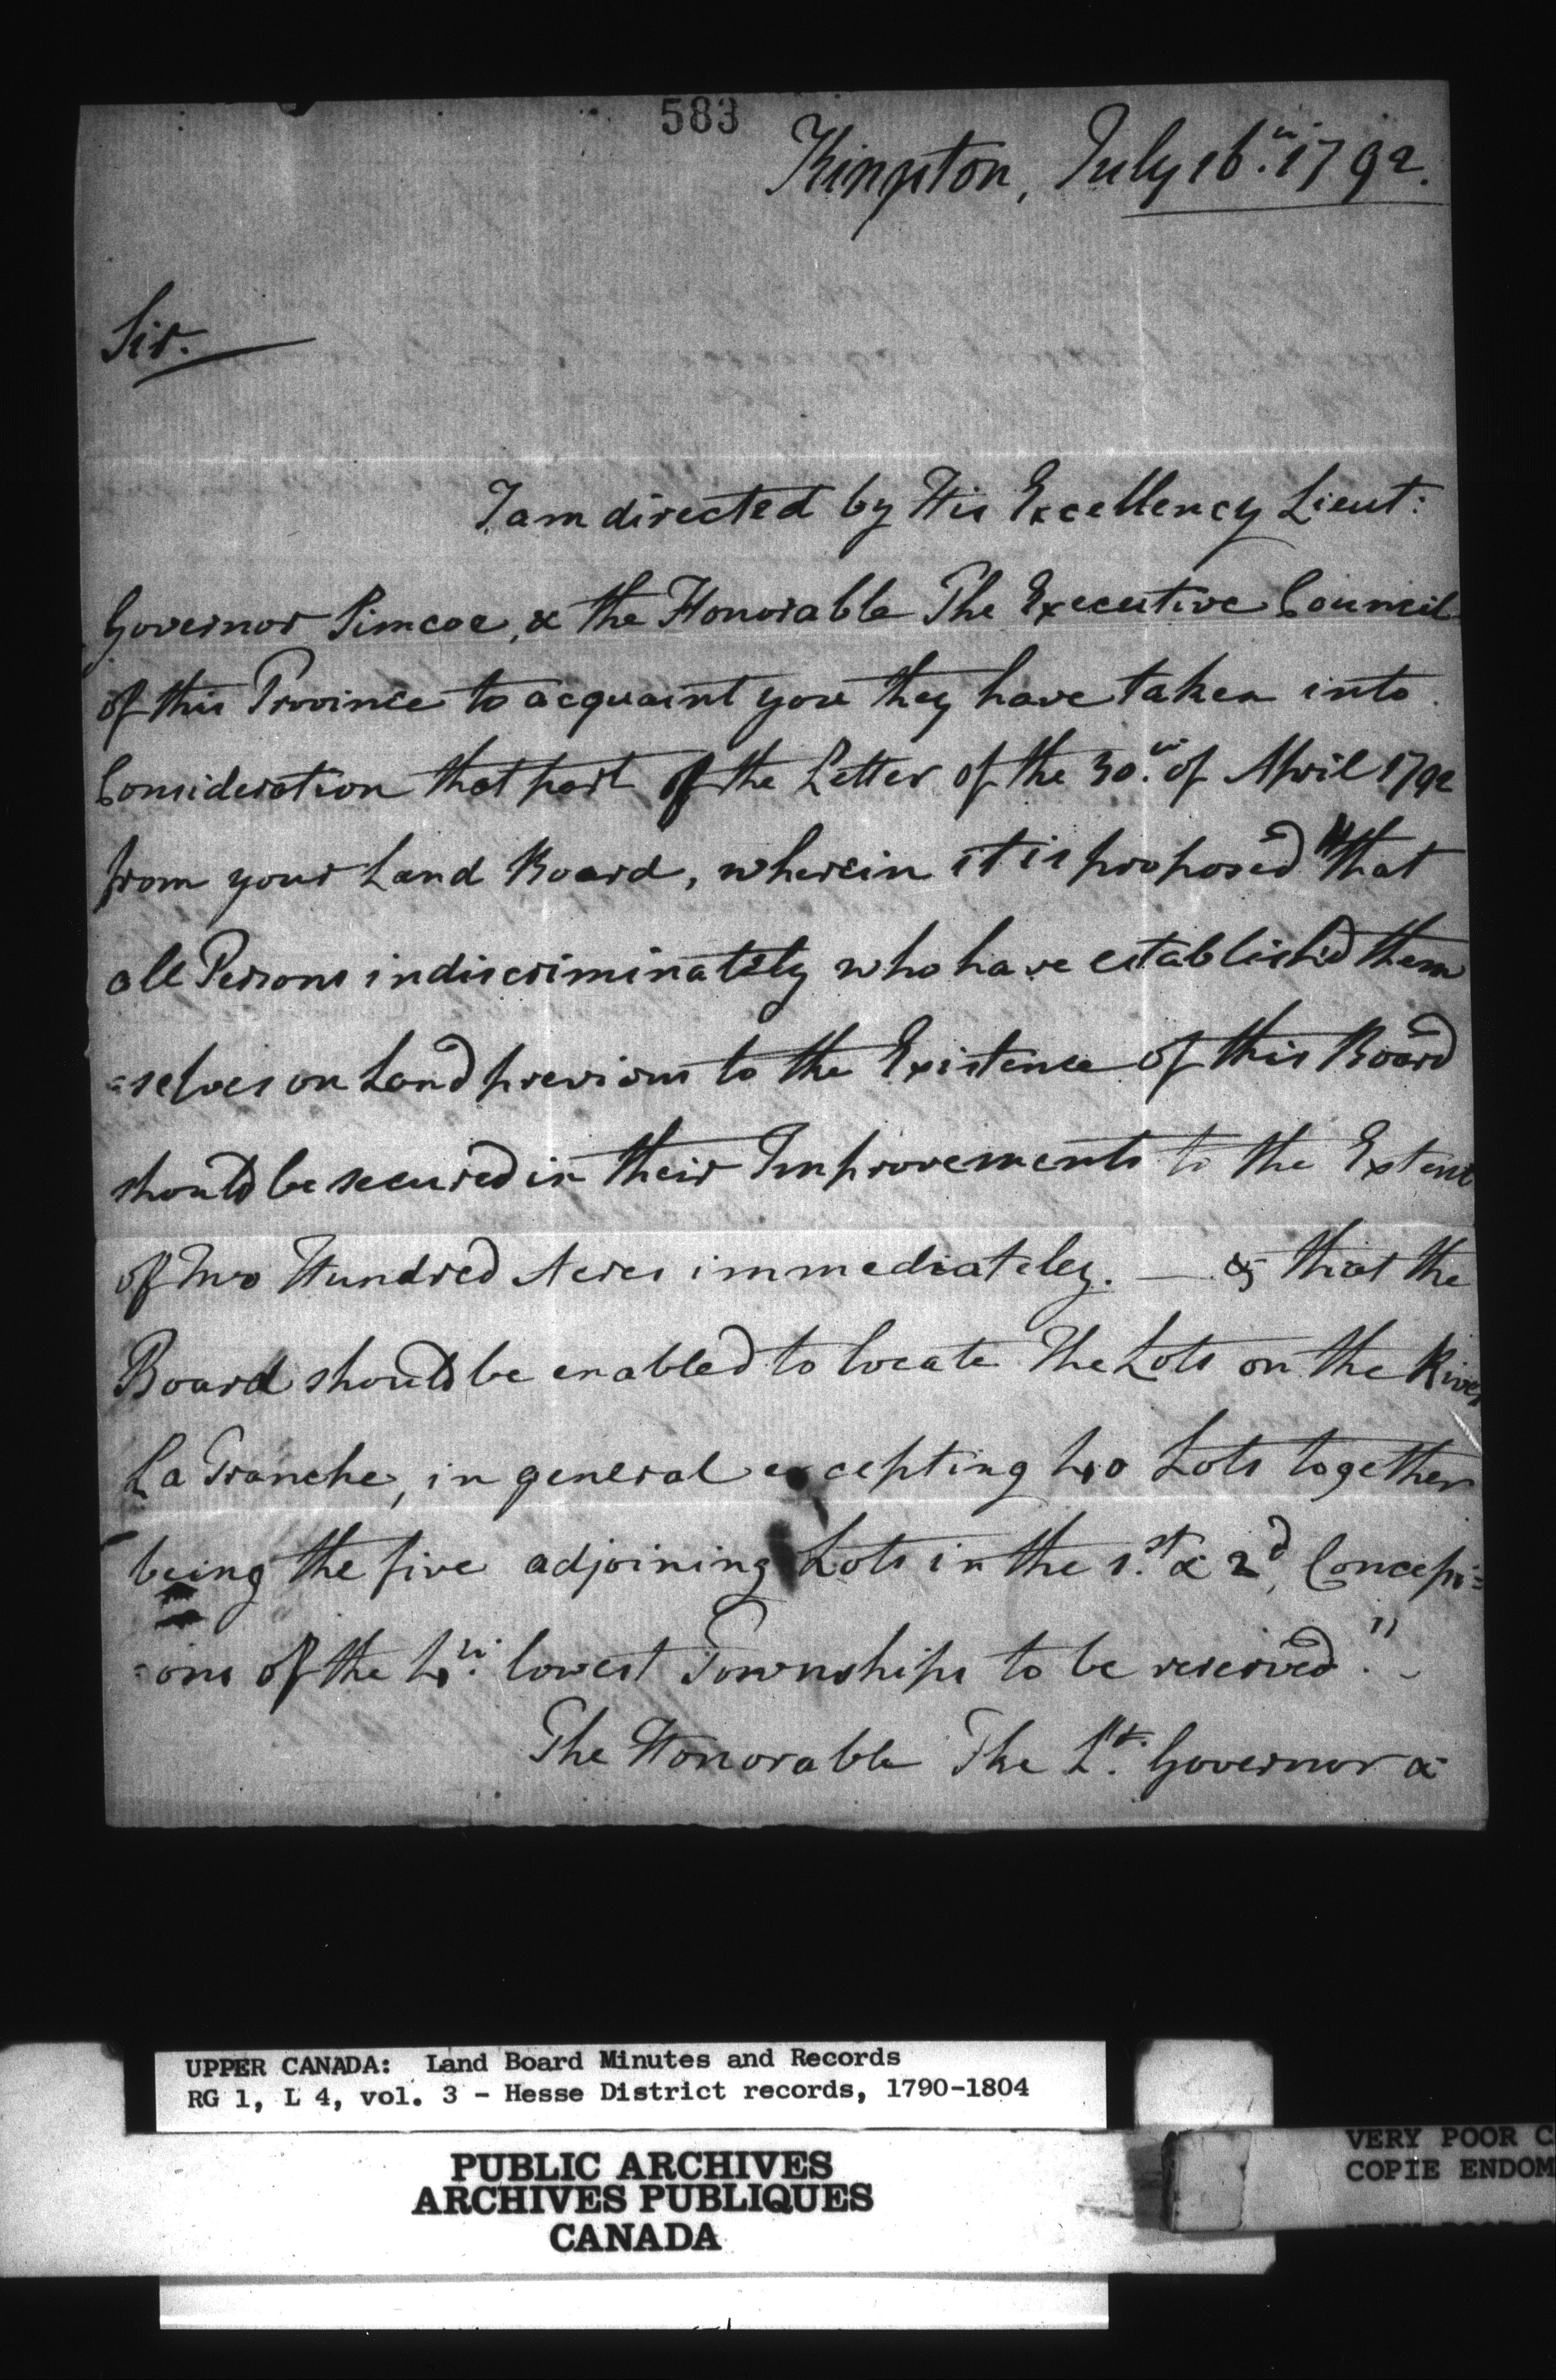 583
Kingston, July 16.th 1792.
Sir.
I am directed by His Excellency Lieut:
Governor Simcoe, & the Honorable The Executive Council
of this Province to acquaint you they have taken into
Consideration that part of the Letter of the 30.th of April 1792
from your Land Board, wherein it is proposed "that
all Persons indiscriminately who have established them
=selves on Land previous to the Existence of this Board
should be secured in their Improvements to the Extent
of Two Hundred Acres immediately. — & that the
Board should be enabled to locate The Lots on the River
La Tranche, in general excepting two Lots together
being the five adjoining Lots in the 1.st & 2.d Concessi=
=ons of the lowest Townships to be reserved."
The Honorable The Lt. Governor &
UPPER CANADA: Land Board Minutes and Records
RG 1, L 4, vol. 3 - Hesse District records, 1790-1804
PUBLIC ARCHIVES
ARCHIVES PUBLIQUES
CANADA
VERY POOR C
COPIE ENDOM